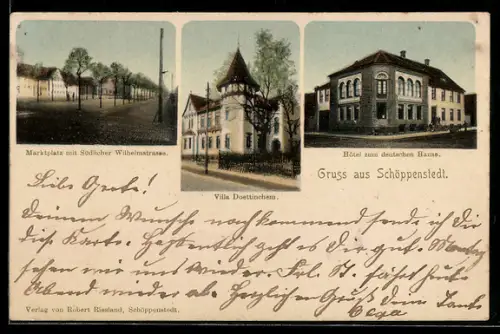 Marktplatz mit Südlicher Wilhelmstrasse.
Villa Doettinchem.
Hôtel zum deutschen Hause.
Gruss aus Schöppenstedt.
Liebe Grete!
Deinem Wunsche nachkommend sende ich Dir
die Karte. Hoffentlich geht es Dir gut.
sehen wir uns wieder. Frl. St. fährt heute
Abend wieder ab. Herzlichen Gruß Dein
Verlag von Robert Rissland, Schöppenstedt.